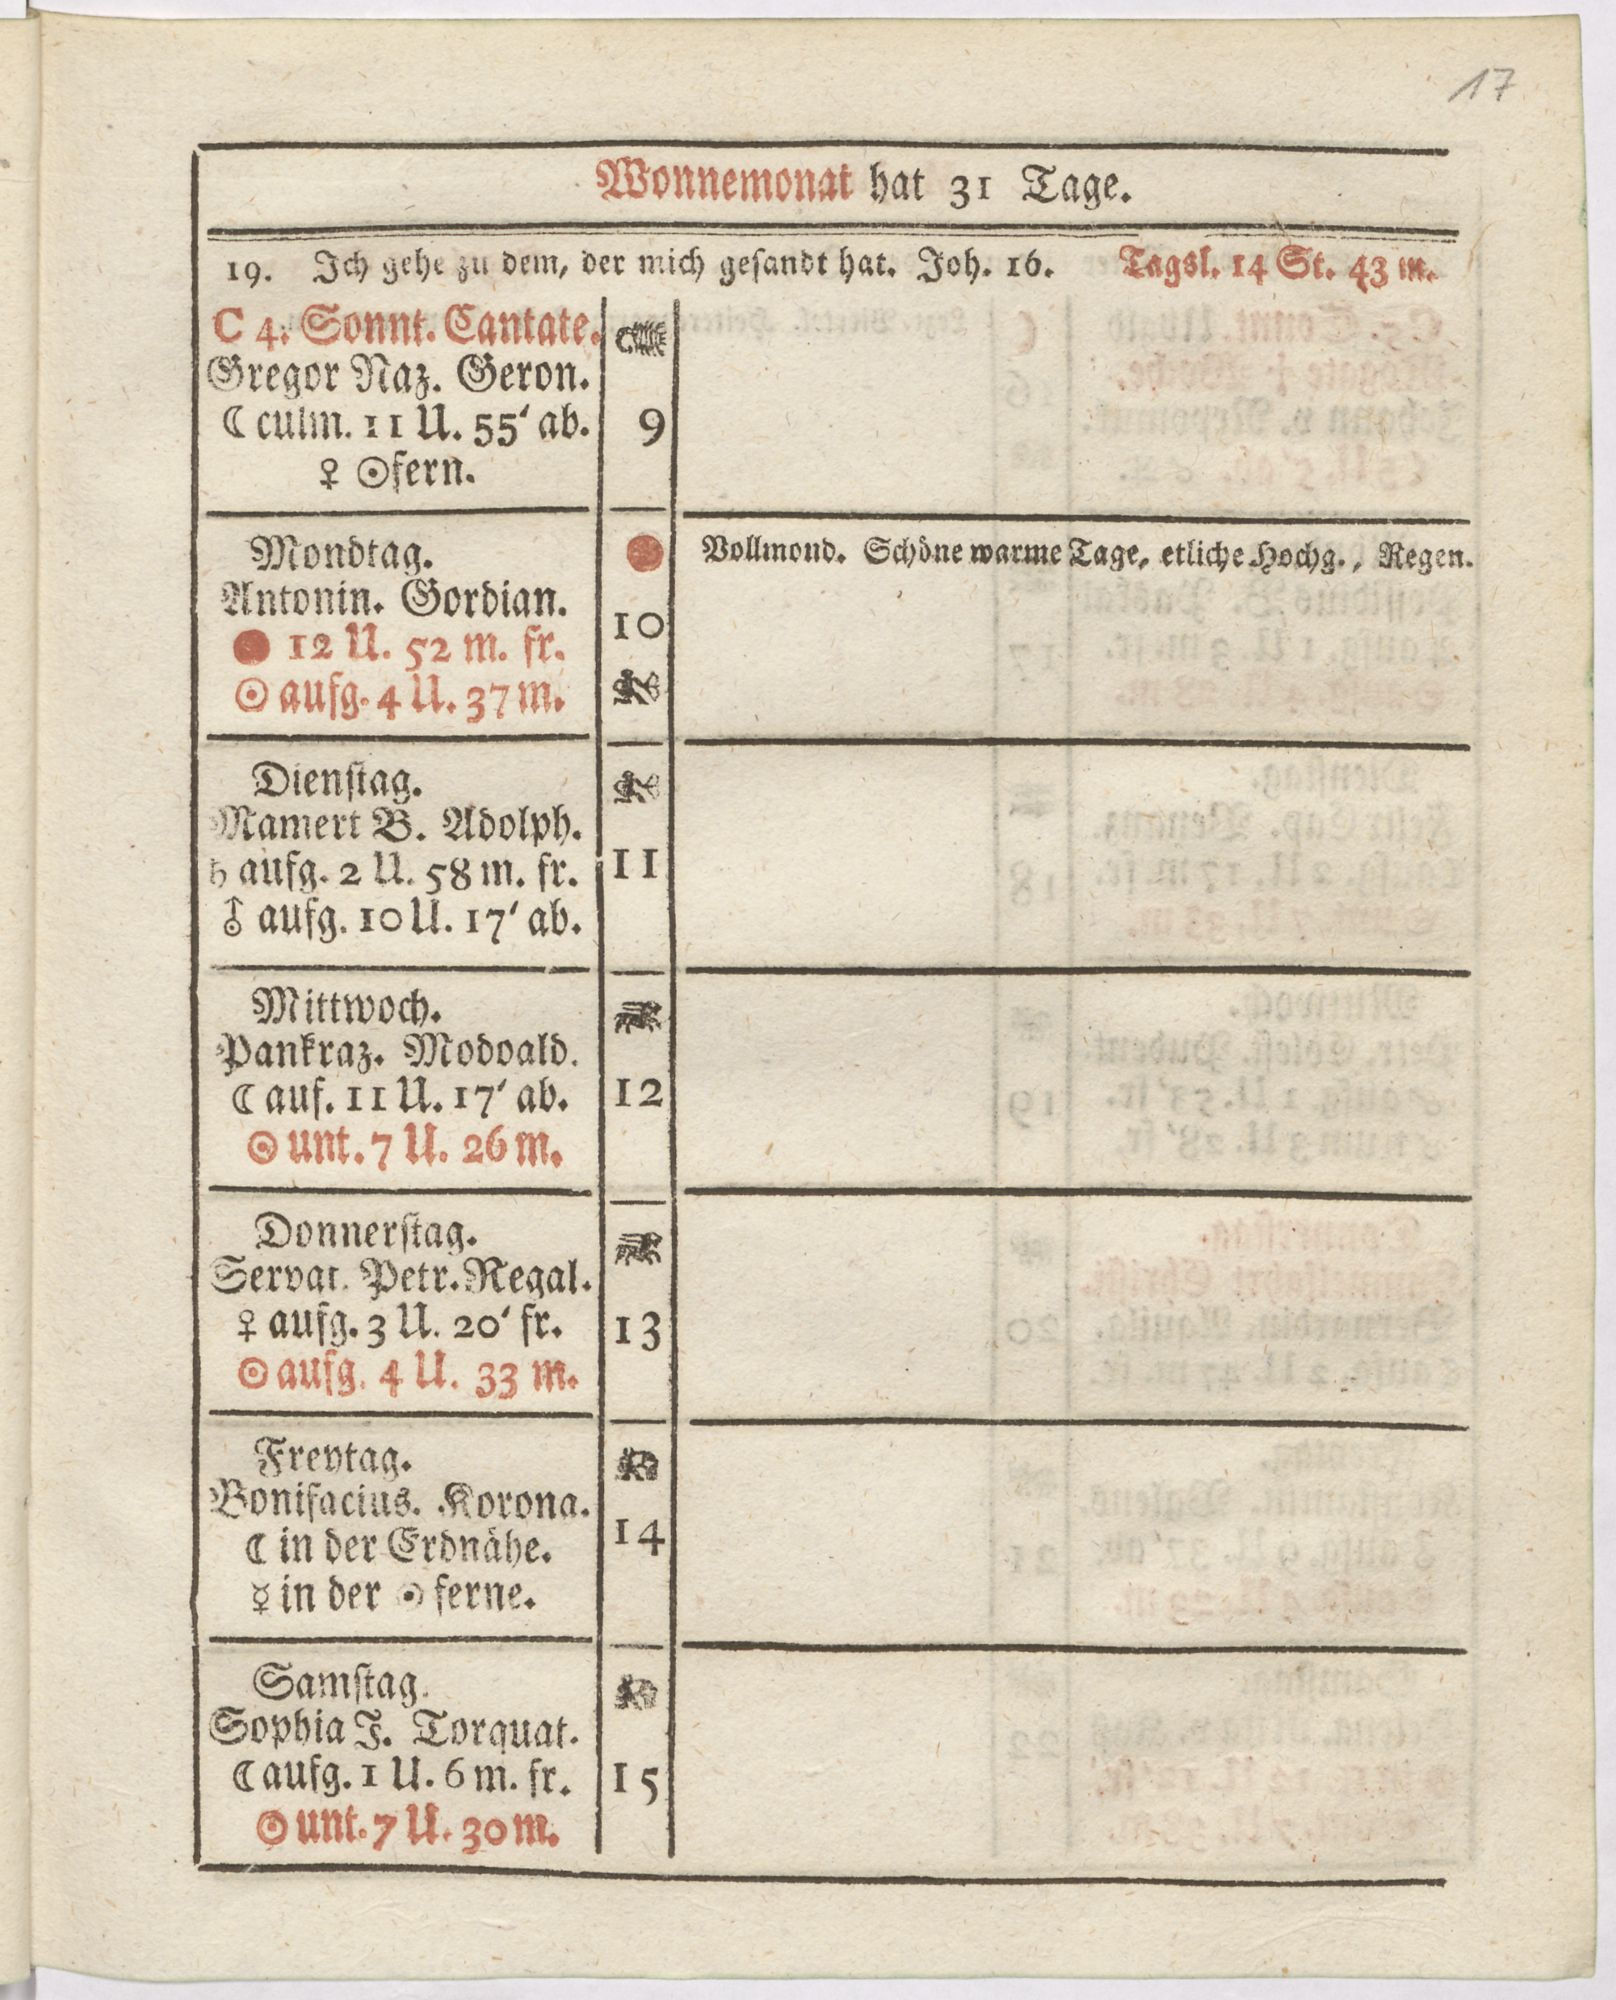 17
Wonnemonat hat 31 Tage.
19. Ich gehe zu dem, der mich gesandt hat. Joh. 16. Tagsl. 14 St. 43 m.
C 4. Sonnt. Cantate.
Gregor Naz. Geron.
☾ culm. 11 U. 55‘ ab. 9
♀ ☉fern.
Mondtag. Vollmond. Schöne warme Tage, etliche Hochg., Regen.
Antonin. Gordian. 10
● 12 U. 52 m. fr.
☉ aufg. 4 U. 37 m.
Dienſtag.
Mamert B. Adolph. 11
♄ aufg. 2 U. 58 m. fr.
♁ aufg. 10 U. 17‘ ab.
Mittwoch.
Pankraz. Modoald.
☾ auf. 11 U. 17‘ ab. 12
☉ unt. 7 U. 26 m.
Donnerſtag.
Servat. Petr. Regal.
♀ aufg. 3 U. 20‘ fr. 13
☉ aufg. 4 U. 33 m.
Freytag.
Bonifacius. Korona. 14
☾ in der Erdnähe.
☿ in der ☉ ferne.
Samſtag.
Sophia J. Torquat.
☾ aufg. 1 U. 6 m. fr. 15
☉ unt. 7 U. 30 m.